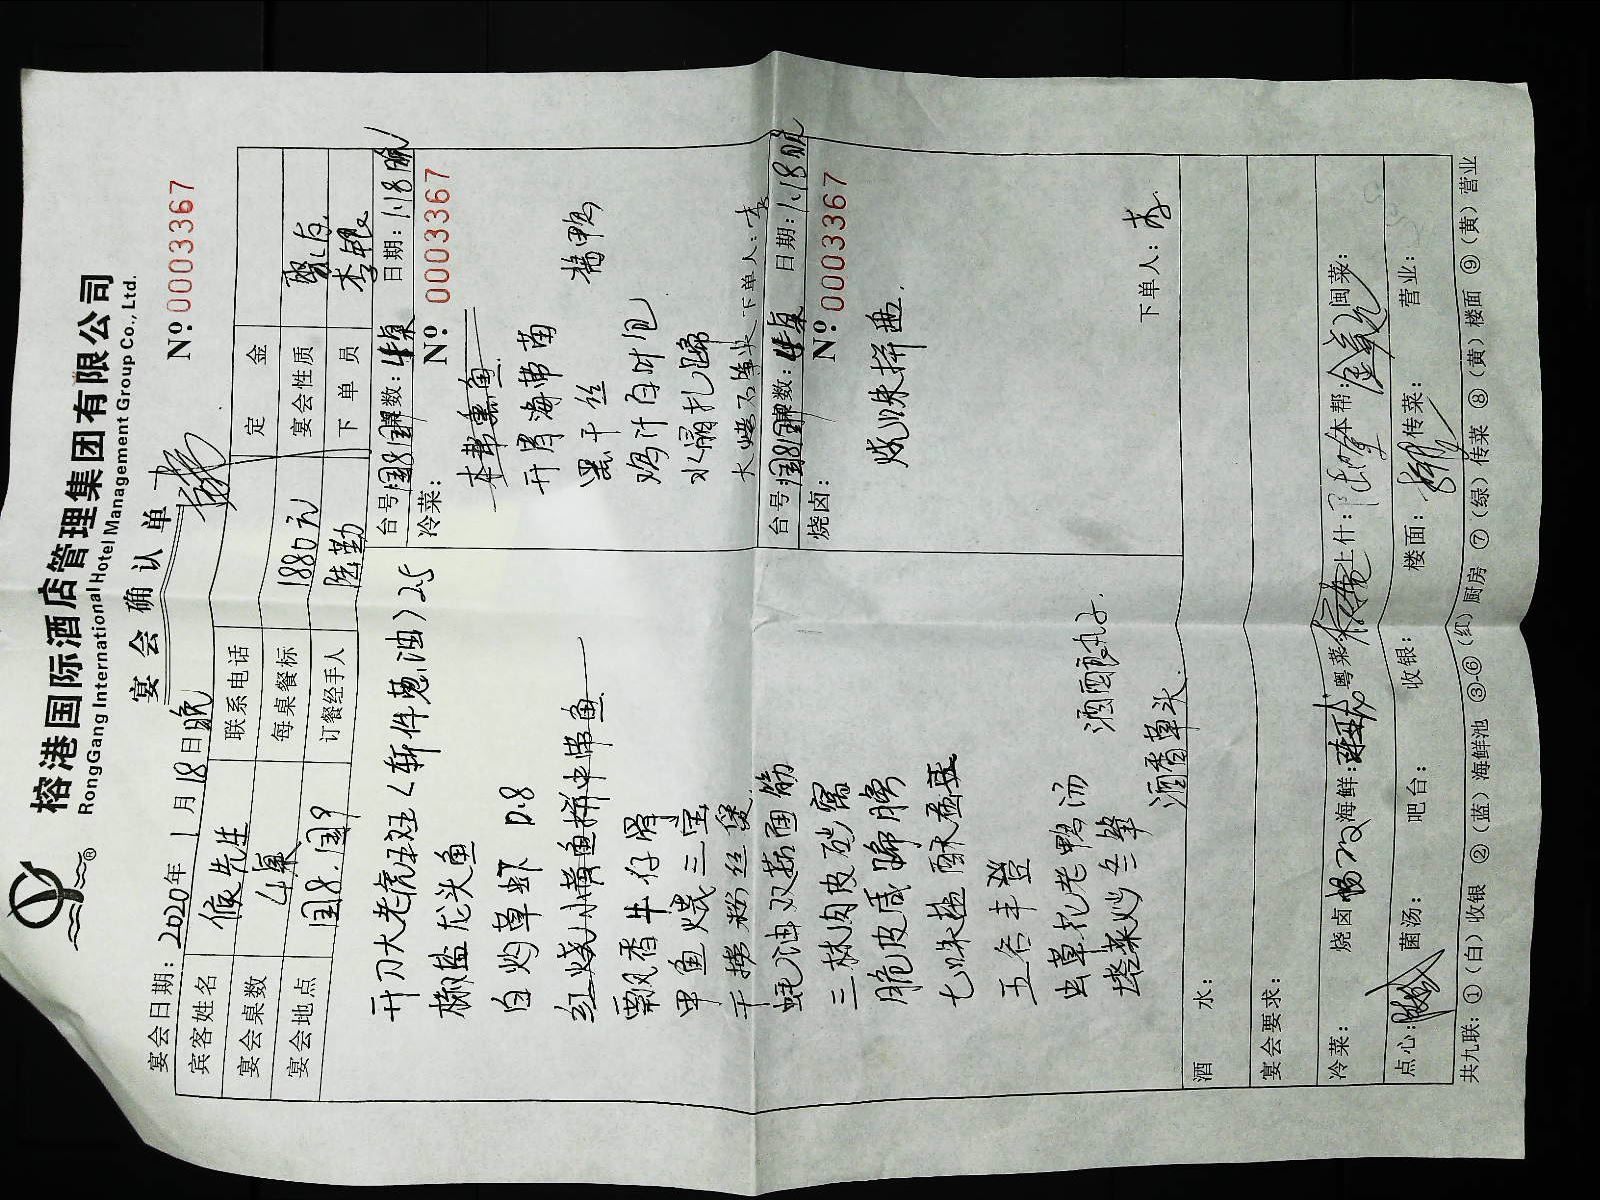 榕港国际酒店管理集团有限公司
RongGang International Hotel Management Group Co., Ltd.
®
宴会确认单
宴会日期：2020年1月18日晚
Nº 0003367
宾客姓名 候先生 联系电话 定金
宴会桌数 4桌 每桌餐标 1880元 宴会性质
宴会地点 国8.国9 订餐经手人 陆勤 下单员 李银
开刀大老虎斑<斩件葱油>2.5
椒盐龙头鱼
白灼草虾 D.8
红烧小黄鱼拼中带鱼
飘香牛仔骨
甲鱼烧三宝
干捞粉丝煲
蚝油双菇面筋
三林肉皮砂窝
脆皮咸蹄髈
七味盐酥
五谷丰登
虫草扎老鸭汤 酒酿丸子
塔菜炒冬笋
酒香草头
台号：国8国9 桌数：4桌 日期：1.18晚
冷菜： Nº 0003367
本帮熏鱼
开胃海带苗
黑干丝
酱鸭
鸡汁白叶包
水晶扎蹄
下单人：李
台号：国8国9 桌数：4桌 日期：1.18晚
烧卤： Nº 0003367
烧味拼盘
下单人：李
酒水：
宴会要求：
冷菜： 烧卤： 海鲜： 粤菜： 上什： 本帮： 闽菜：
点心： 菌汤： 吧台： 收银： 楼面： 传菜： 营业：
共九联：①（白）收银 ②（蓝）海鲜池 ③-⑥（红）厨房 ⑦（绿）传菜 ⑧（黄）楼面 ⑨（黄）营业